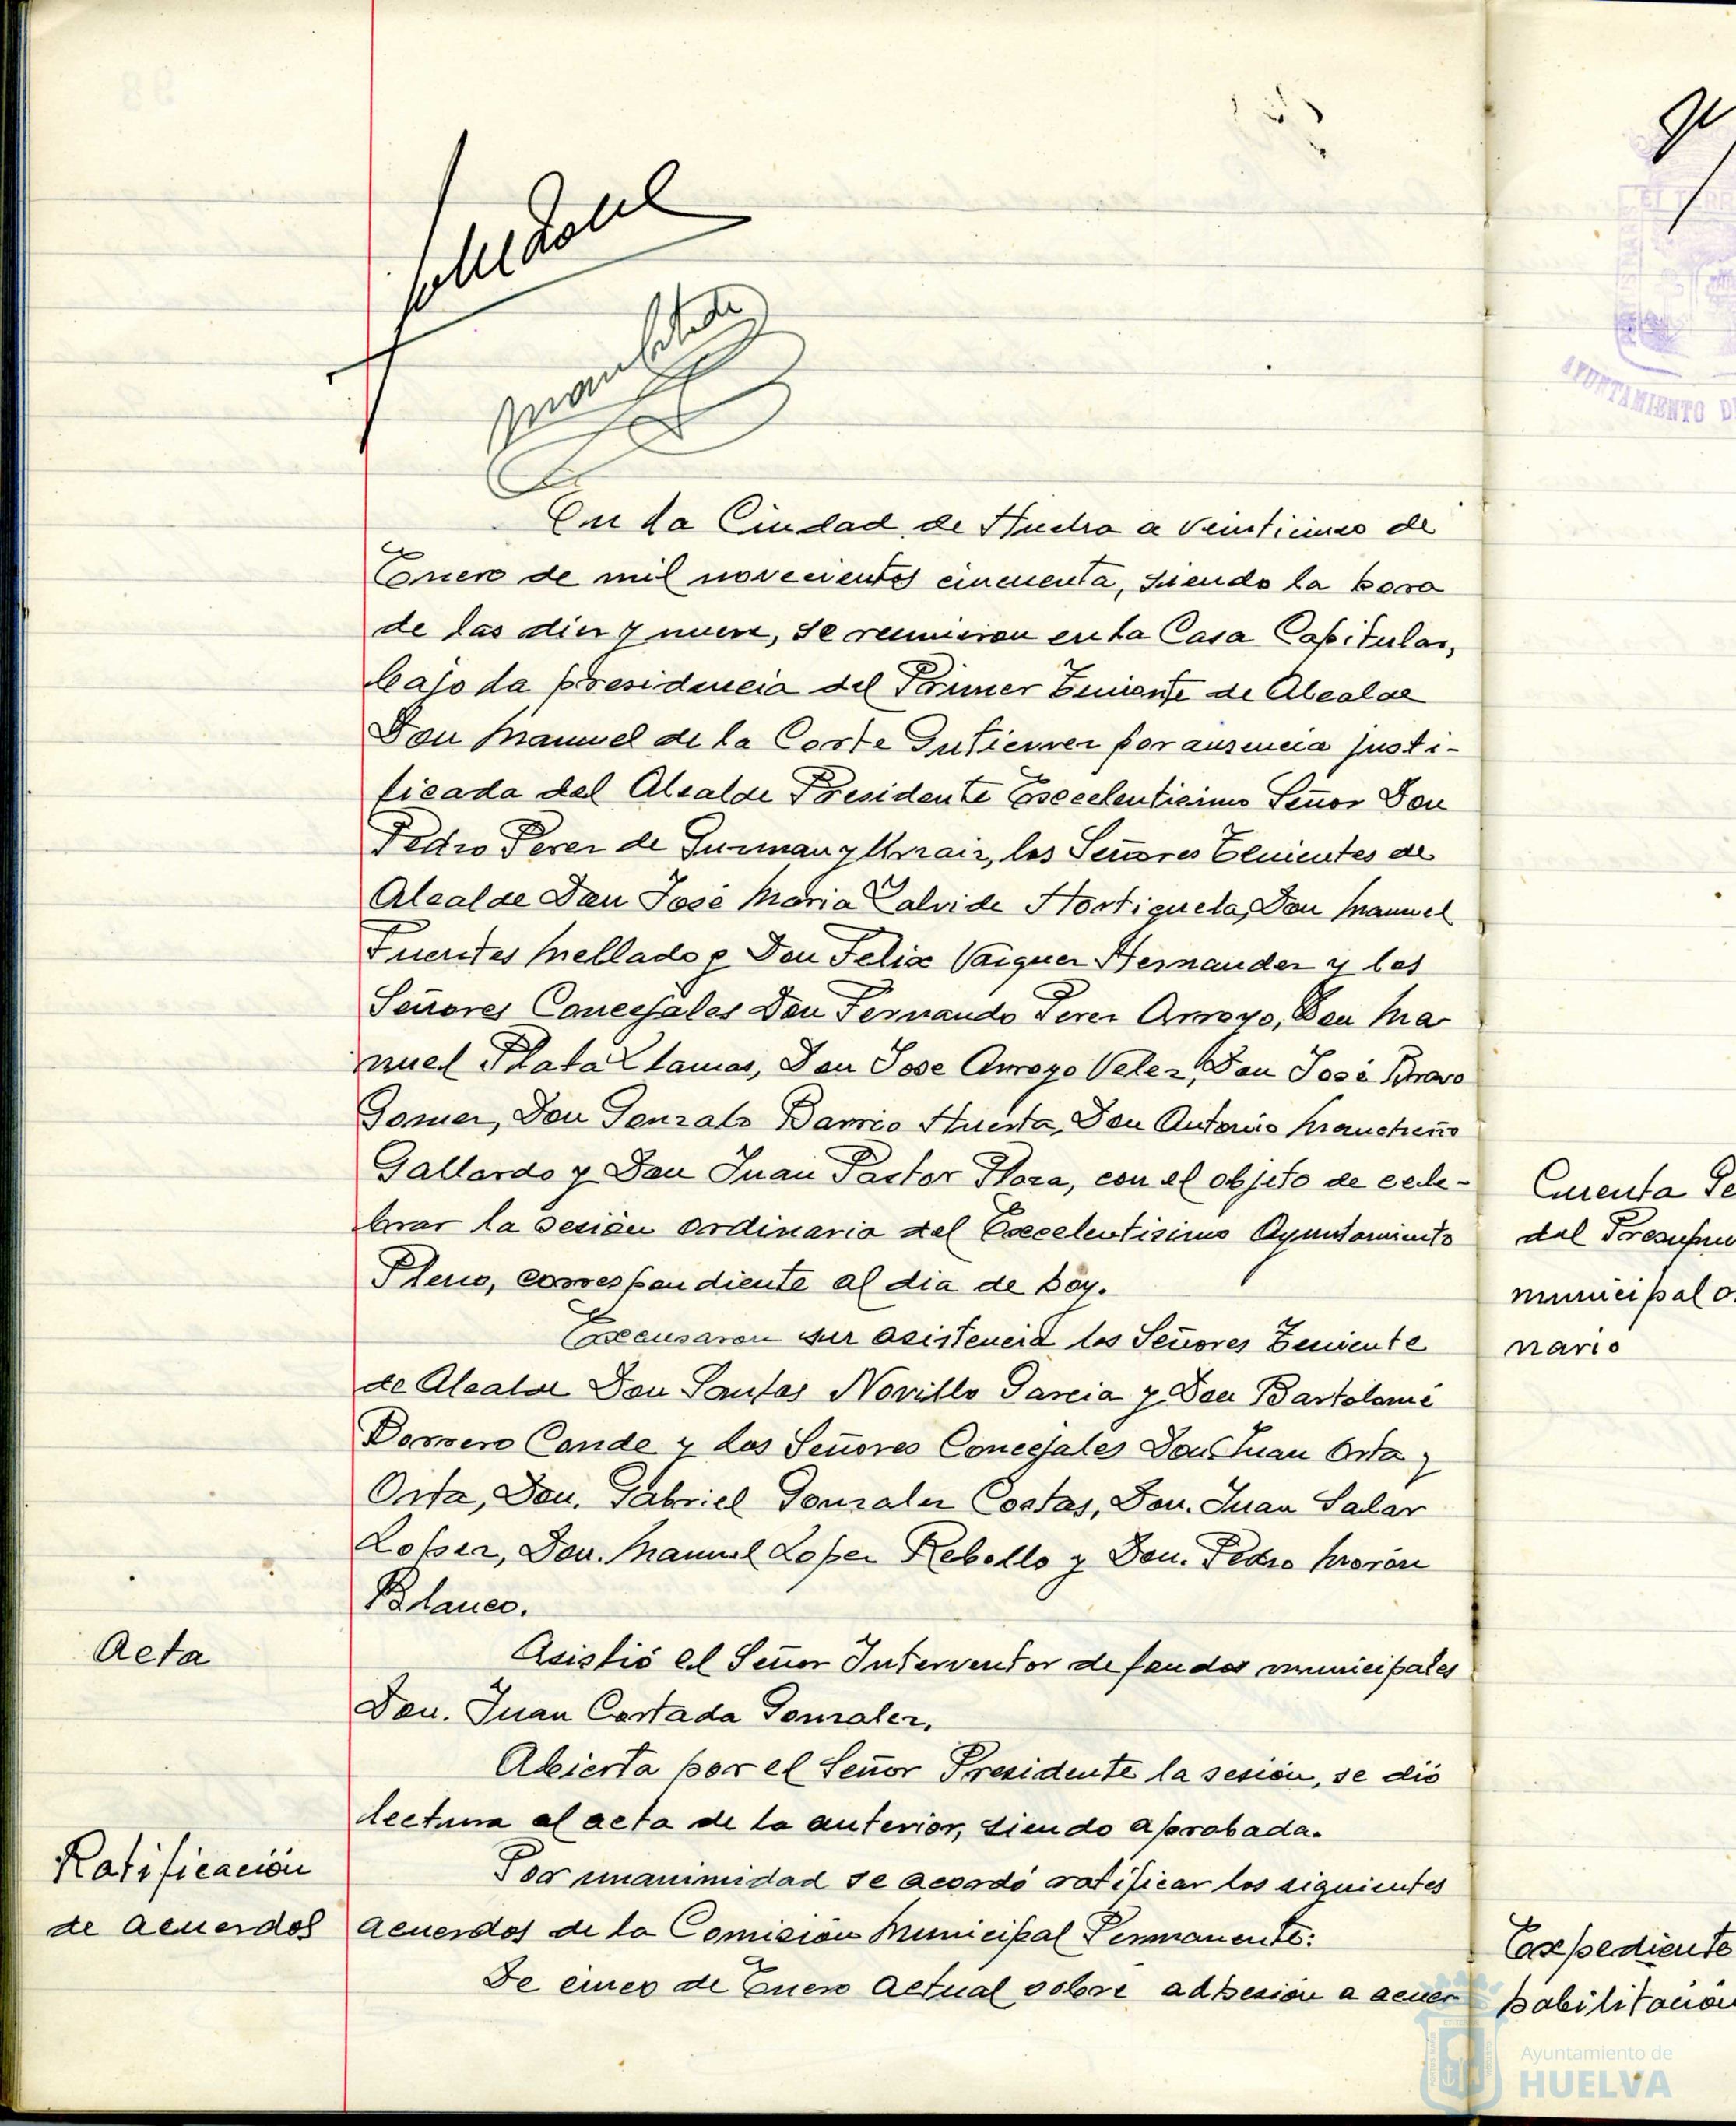 En la Ciudad de Huelva a veinticinco de
Enero de mil novecientos cincuenta, siendo la hora
de las diez y nueve, se reunieron en la Casa Capitular,
bajo la presidencia del Primer Teniente de Alcalde
Don Manuel de la Corte Gutierrez por ausencia justi-
ficada del Alcalde Presidente Excelentisimo Señor Don
Pedro Perez de Guzman y Urzaiz, los Señores Tenientes de
Alcalde Don José Maria Calvide Hortiguela, Don Manuel
Fuentes Mellado y Don Felix Vazquez Hernandez y los
Señores Concejales Don Fernando Perez Arroyo, Don Ma
nuel Plata Llamas, Don Jose Arroyo Velez, Don José Bravo
Gomez, Don Gonzalo Barrio Huerta, Don Antonio Mancheño
Gallardo y Don Juan Pastor Flora, con el objeto de cele-
brar la sesión ordinaria del Excelentisimo Ayuntamiento
Pleno, correspondiente al dia de hoy.
Excusaron su asistencia los Señores Teniente
de Alcalde Don Santos Novillo Garcia y Don Bartolomé
Borrero Conde y los Señores Concejales Don Juan Orta y
Orta, Don. Gabriel Gonzalez Costas, Don. Juan Salar
Lopez, Don. Manuel Lopez Rebollo y Don. Pedro Morón
Blanco.
Acta
Asistió el Señor Interventor de fondos municipales
Don. Juan Cortada Gonzalez.
Abierta por el Señor Presidente la sesión, se dió
lectura al acta de la anterior, siendo aprobada.
Ratificación
de acuerdos
Por unanimidad se acordó ratificar los siguientes
acuerdos de la Comisión Municipal Permanente:
De cinco de Enero actual sobre adhesión a acuer
Cuenta Ge
del Presupu
municipal o
nario
Expediente
habilitación
AYUNTAMIENTO D
Ayuntamiento de
HUELVA